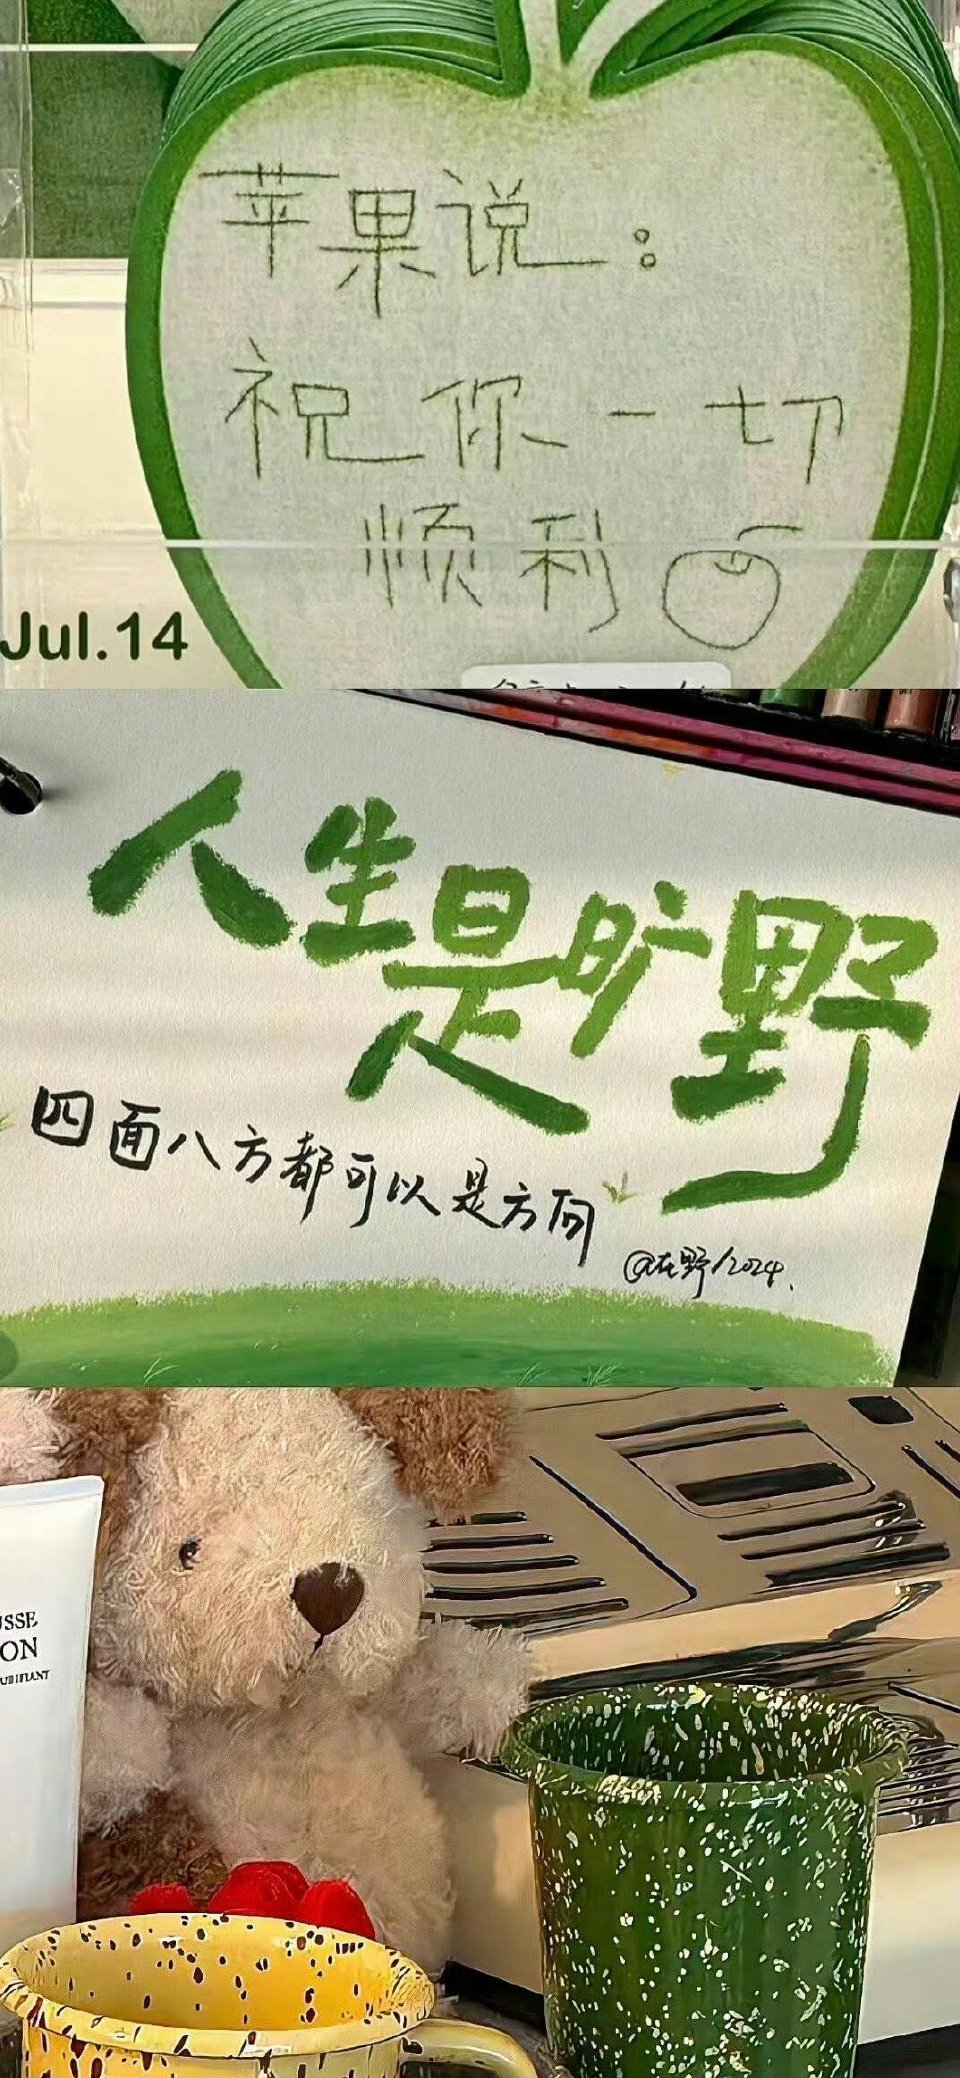 苹果说：
祝你一切
顺利
Jul.14
人生是旷野
四面八方都可以是方向
@在野/2024.
USSE
ON